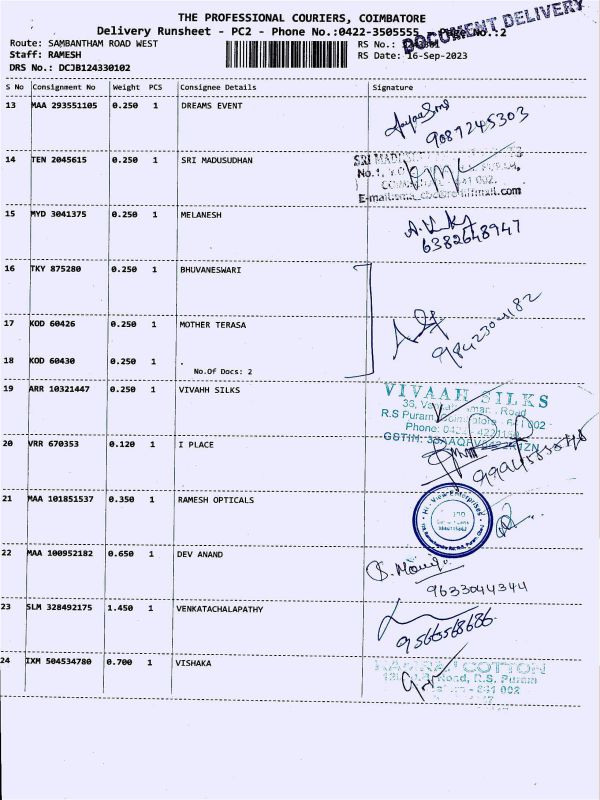 THE PROFESSIONAL COURIERS, COIMBATORE
Delivery Runsheet - PC2 - Phone No.:0422-3505555 No.:2
DOCUMENT DELIVERY
Route: SAMBANTHAM ROAD WEST RS No.:
Staff: RAMESH RS Date: 16-Sep-2023
DRS No.: DCJB124330102
S No Consignment No Weight PCS Consignee Details Signature
13 MAA 293551105 0.250 1 DREAMS EVENT
9087245303
14 TEN 2045615 0.250 1 SRI MADUSUDHAN
15 MYD 3041375 0.250 1 MELANESH
6382648947
16 TKY 875280 0.250 1 BHUVANESWARI
9842304182
17 KOD 60426 0.250 1 MOTHER TERASA
18 KOD 60430 0.250 1
No.Of Docs: 2
19 ARR 10321447 0.250 1 VIVAHH SILKS
VIVAAH SILKS
R.S Puram
Phone:
GSTIN:
20 VRR 670353 0.120 1 I PLACE
21 MAA 101851537 0.350 1 RAMESH OPTICALS
Hi-View Enterprises
22 MAA 100952182 0.650 1 DEV ANAND
9633044344
23 SLM 328492175 1.450 1 VENKATACHALAPATHY
9566568686
24 IXM 504534780 0.700 1 VISHAKA
COTTON
Road, R.S. Puram